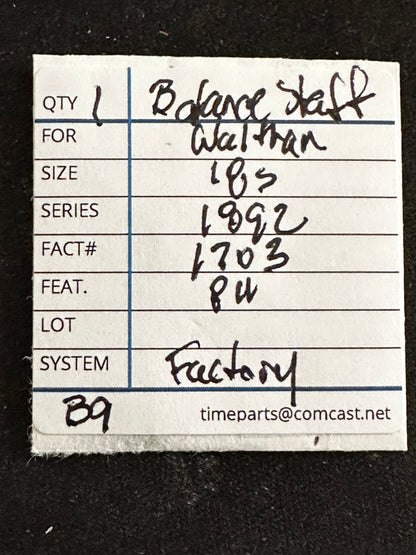 QTY 1 Balance Staff
FOR Waltham
SIZE 18s
SERIES 1892
FACT# 1703
FEAT. PW
LOT
SYSTEM Factory
B9 timeparts@comcast.net